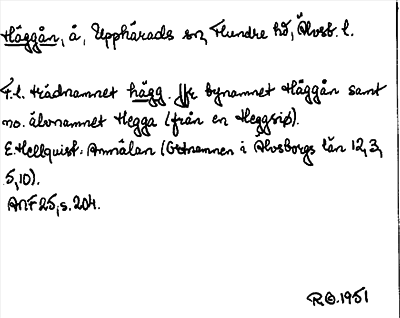 Häggån, å, Upphärads sn, Flundre hd, Älvsb. l.
T.l. trädnamnet hägg. Jfr bynamnet Häggån samt
no. älvnamnet Hegga (från en Heggsio).
E. Hellquist: Anmälan (Ortnamnen i Älvsborgs län 12, 3,
5, 10).
ANF 25, s. 204.
R.O. 1951